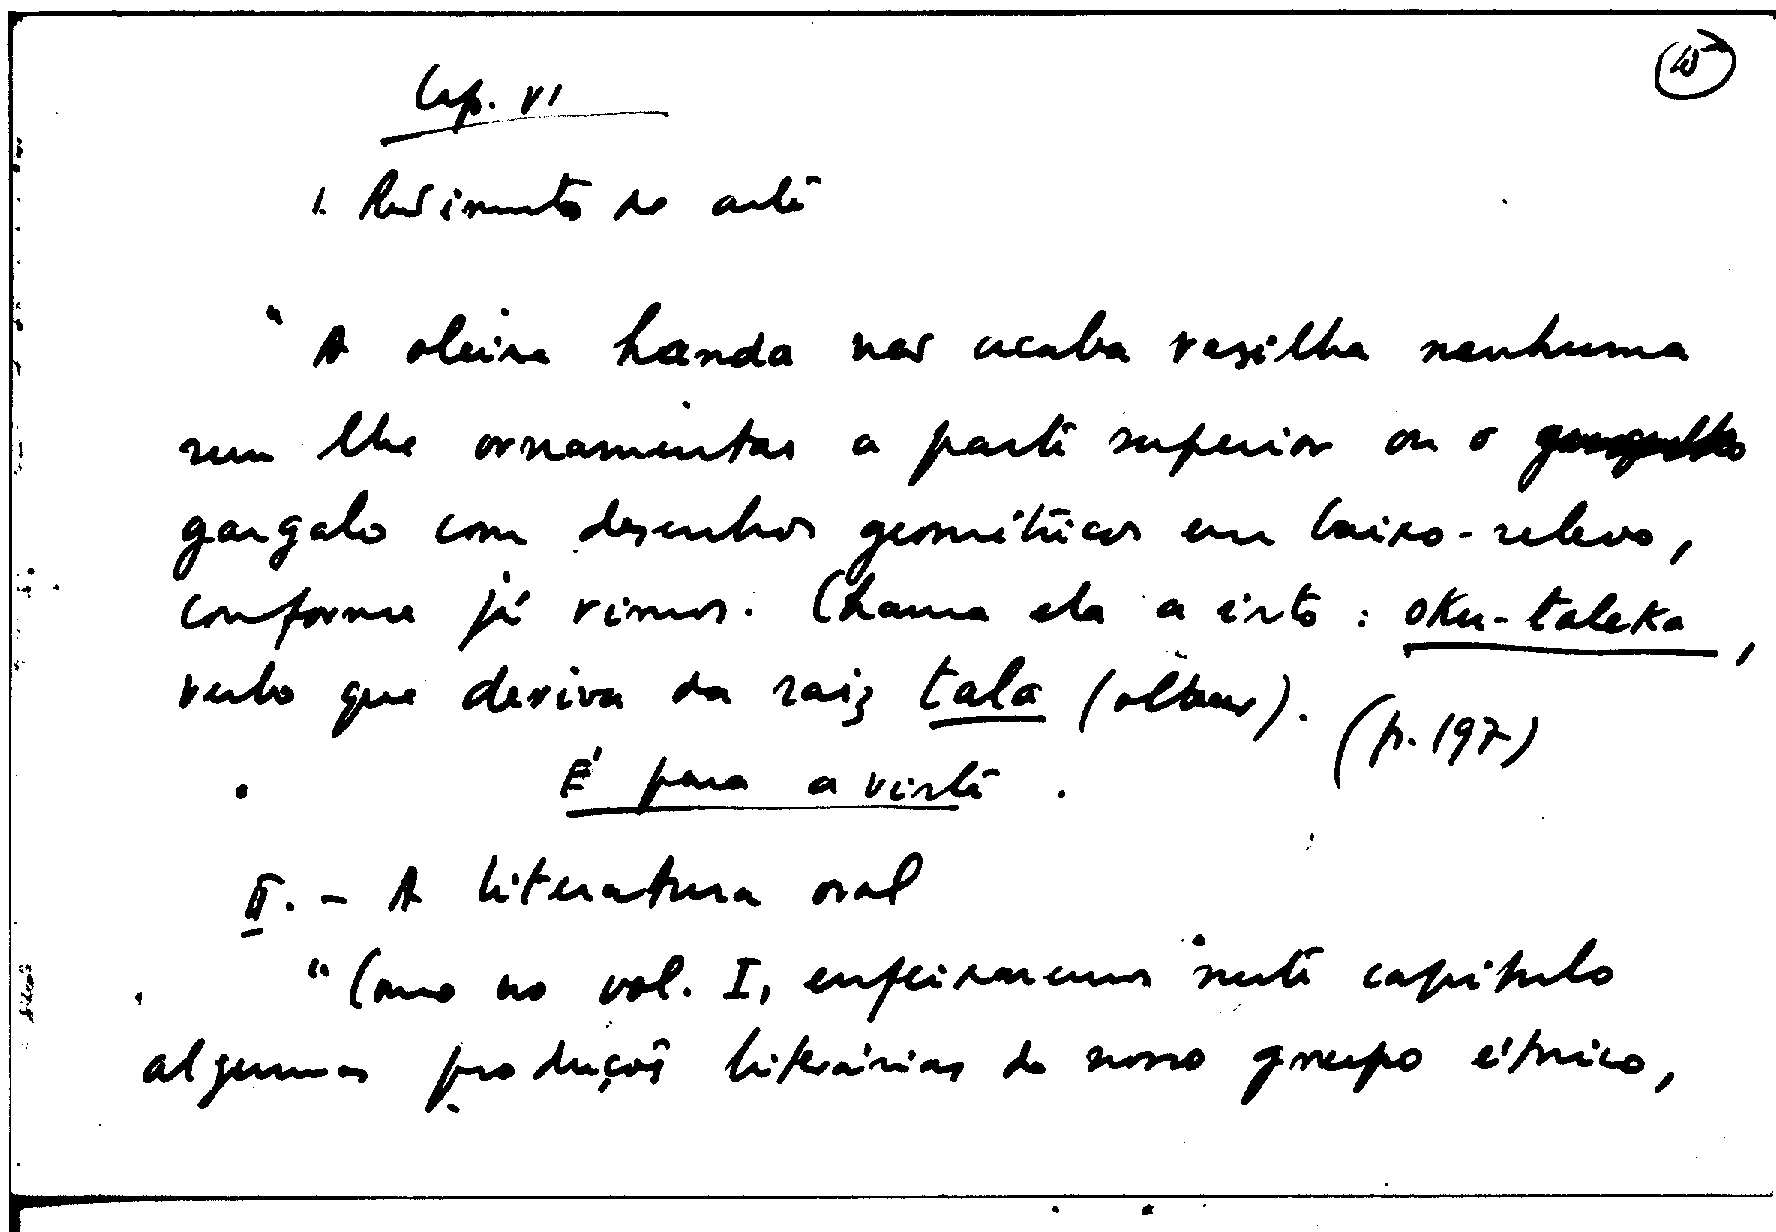 Cap. VI
1. Rudimentos de arte
"A oleira handa não acaba vasilha nenhuma
sem lhe ornamentar a parte superior ou o
gargalo com desenhos geométricos em baixo-relevo,
conforme já vimos. Chama ela a isto: oku-taleka,
verbo que deriva da raiz tala (olhar). (p. 197)
É para a vista.
II. - A literatura oral
"Como no vol. I, enfeixaremos neste capítulo
algumas produções literárias do nosso grupo étnico,